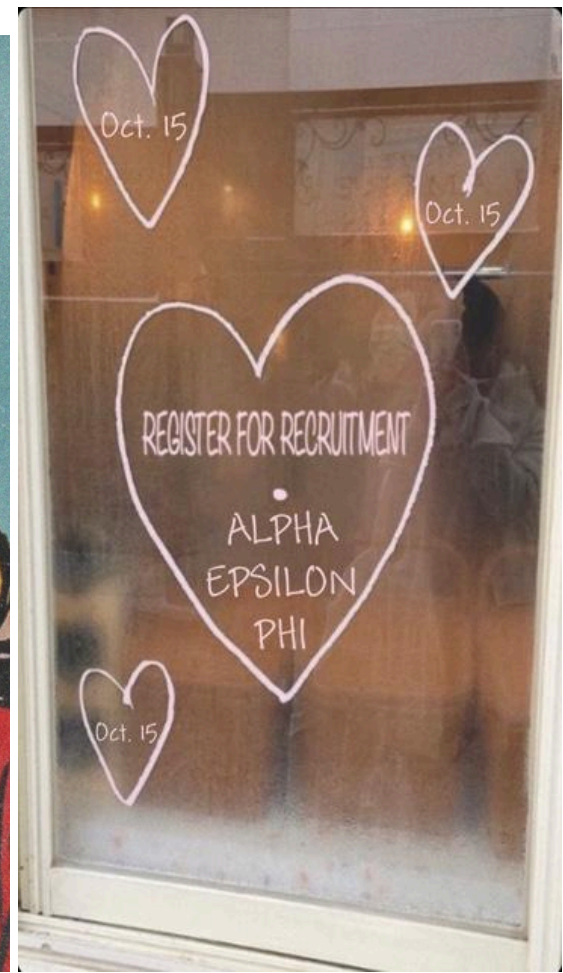 Oct. 15
Oct. 15
REGISTER FOR RECRUITMENT
ALPHA
EPSILON
PHI
Oct. 15